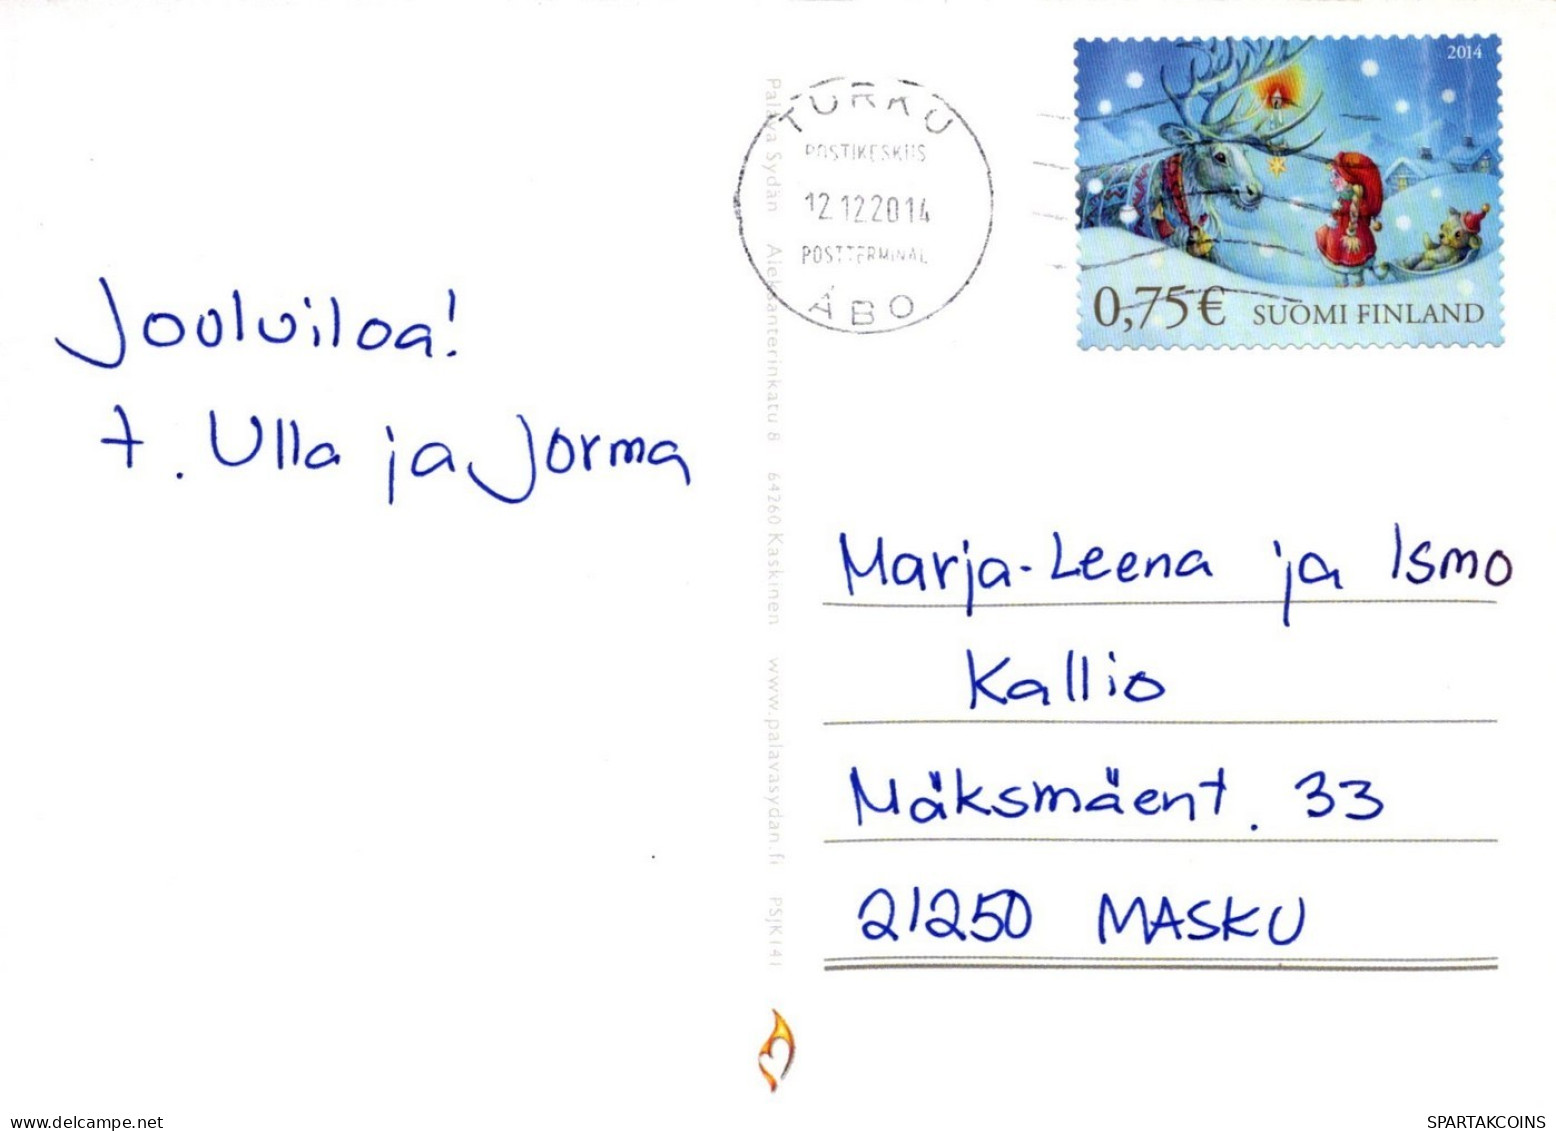 Jouluiloa!
t. Ulla ja Jorma
TURKU
POSTIKESKUS
12.12.2014
POSTTERMINAL
ÅBO
2014
0,75€ SUOMI FINLAND
Palava Sydän Aleksanterinkatu 8 64260 Kaskinen www.palavasydan.fi PSJK141
Marja-Leena ja Ismo
Kallio
Mäksmäent. 33
21250 MASKU
delcampe.net
SPARTAKCOINS